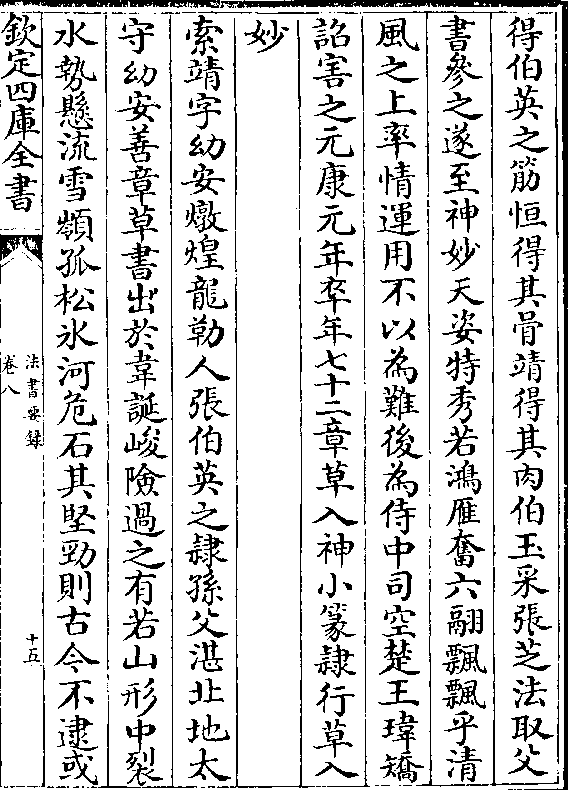 得伯英之筋恒得其骨靖得其肉伯玉采張芝法取父
書參之遂至神妙天姿特秀若鴻雁奮六翮飄飄乎清
風之上率情運用不以為難後為侍中司空楚王瑋矯
詔害之元康元年卒年七十二章草入神小篆隷行草入
妙
索靖字幼安燉煌龍勒人張伯英之隷孫父湛北地太
守幼安善章草書出於韋誕峻險過之有若山形中裂
水勢懸流雪嶺孤松氷河危石其堅勁則古今不逮或
欽定四庫全書
法書要録
卷八
十五